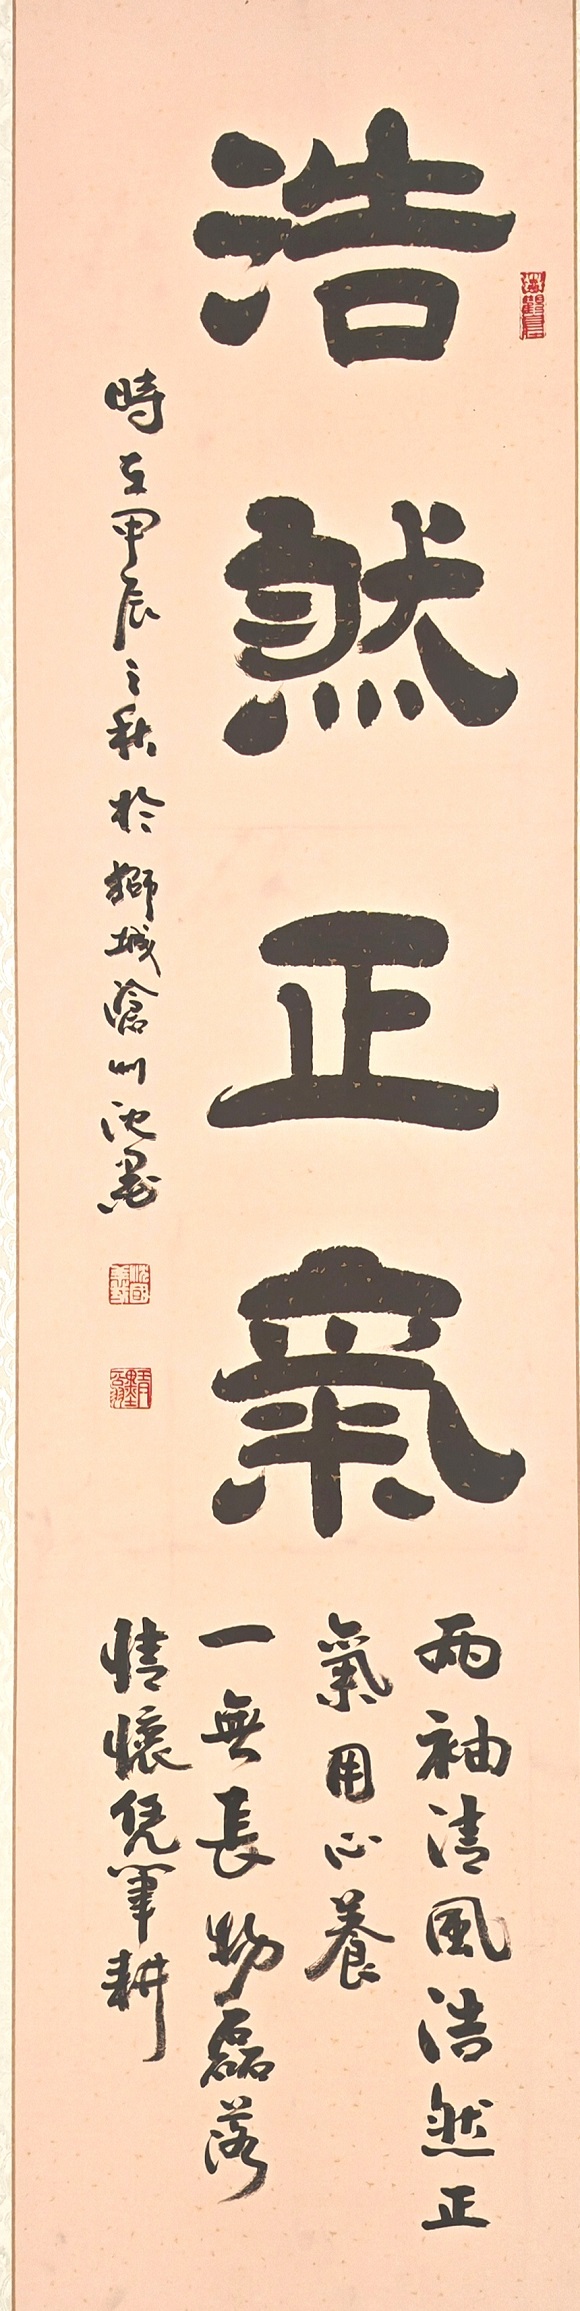 浩然正氣
兩袖清風浩然正
氣用心養
一無長物磊落
情懷凭筆耕
時在甲辰之秋於獅城滄州沈墨